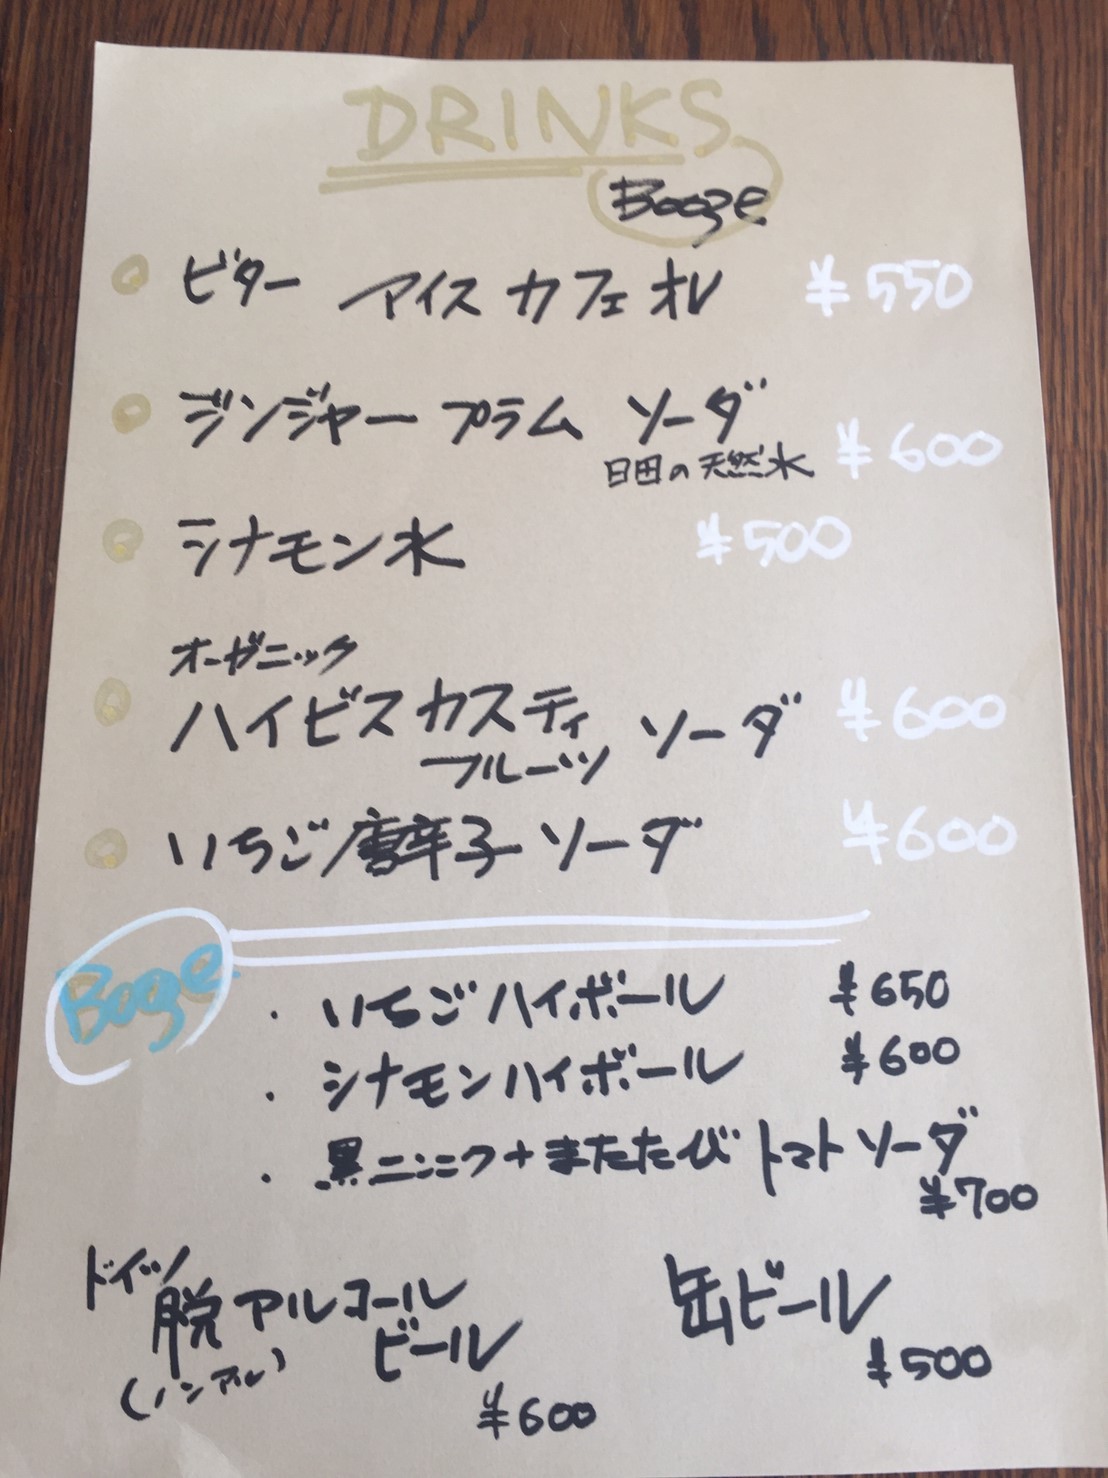 DRINKS
Booze
ビター アイス カフェ オレ ¥550
ジンジャー プラム ソーダ ¥600
日田の天然水
シナモン水 ¥500
オーガニック
ハイビスカスティ ソーダ ¥600
フルーツ
いちご唐辛子ソーダ ¥600
Booze
・いちごハイボール ¥650
・シナモンハイボール ¥600
・黒ニンニク+またたび トマトソーダ
¥700
ドイツ
脱アルコール
ビール
(ノンアル)
¥600
缶ビール
¥500